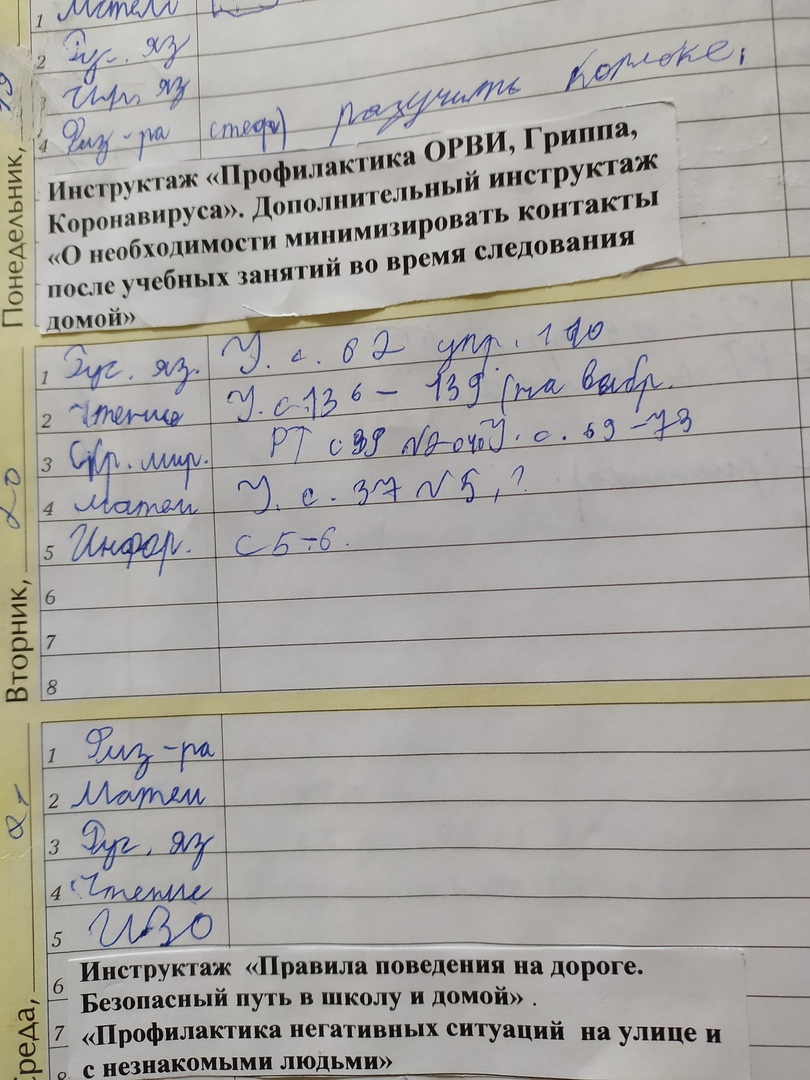 Понедельник, 19
1 Матем
2 Рус. яз
3 яз
4 Физ-ра разучить
Инструктаж «Профилактика ОРВИ, Гриппа,
Коронавируса». Дополнительный инструктаж
«О необходимости минимизировать контакты
после учебных занятий во время следования
домой»
Вторник, 20
1 Рус. яз. У. с. 62 упр.
2 Чтение У. с. 136 - 139 (на выбр.
3 Окр. мир. РТ У. с. 69-73
4 матем У. с. 37 №5, ?
5 Инфор. С 5-6.
6
7
8
Среда, 21
1 Физ-ра
2 Матем
3 Рус. яз
4 Чтение
5 ИЗО
6 Инструктаж «Правила поведения на дороге.
Безопасный путь в школу и домой» .
7 «Профилактика негативных ситуаций на улице и
8 с незнакомыми людьми»